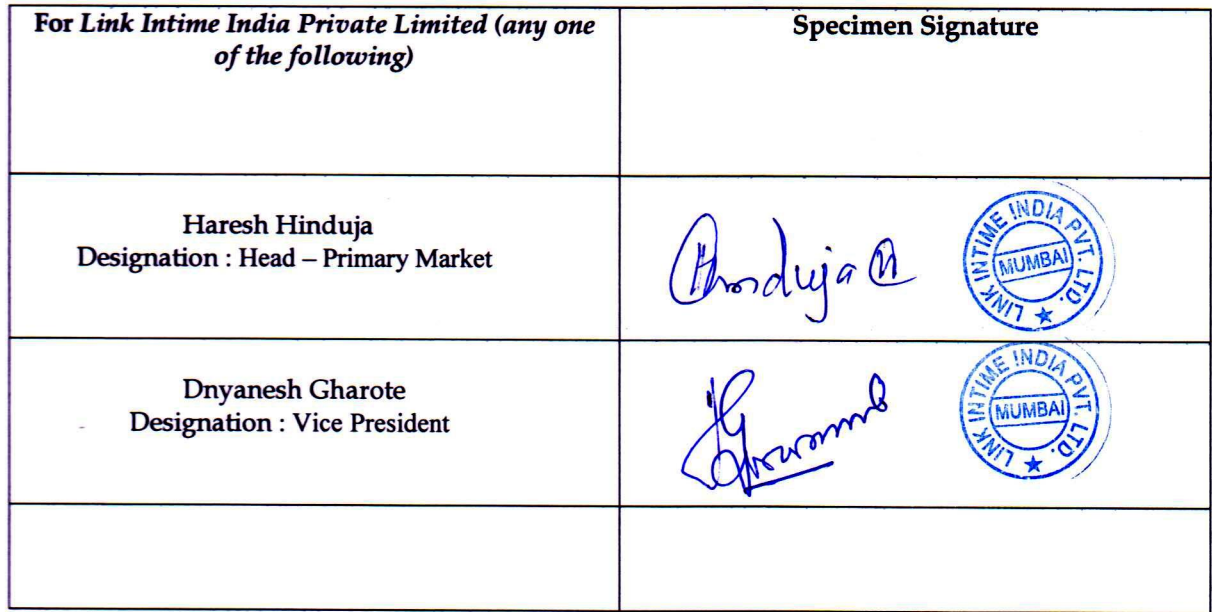 For Link Intime India Private Limited (any one
of the following)
Specimen Signature
Haresh Hinduja
Designation : Head – Primary Market
LINK INTIME INDIA PVT. LTD.
MUMBAI
Dnyanesh Gharote
Designation : Vice President
LINK INTIME INDIA PVT. LTD.
MUMBAI